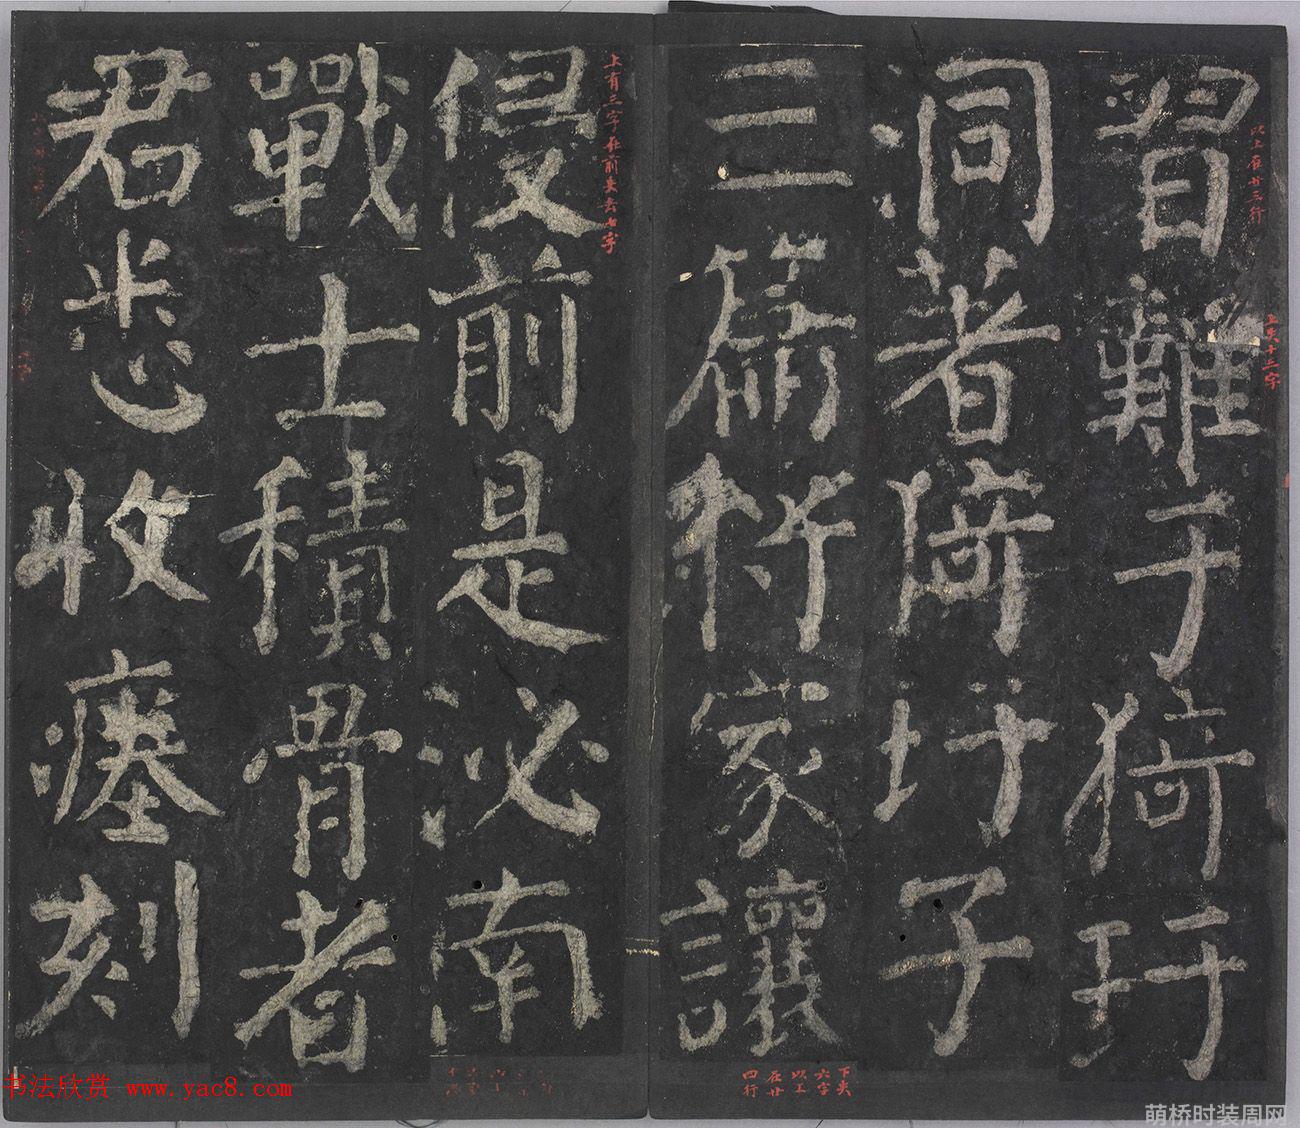 習難于猗玗
洞著猗玗子
三篇將家讓
侵前是泌南
戰士積骨者
君悉收瘞刻
以上在廿三行
上失十三字
下失六字以上在廿四行
上有三字在前失去七字
书法欣赏 www.yac8.com
萌桥时装周网